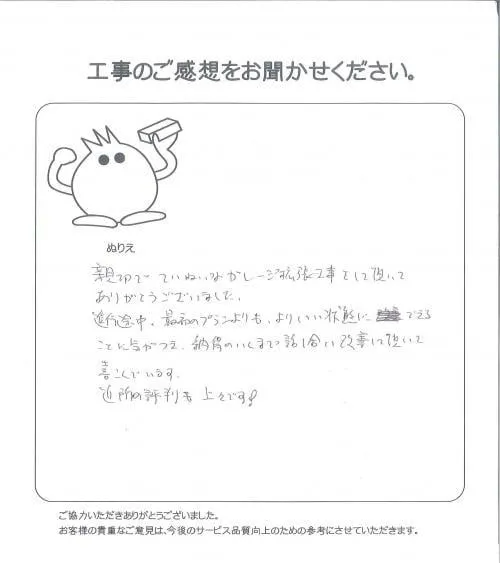 工事のご感想をお聞かせください。
ぬりえ
親切で ていねいなガレージ拡張工事をして頂いて
ありがとうございました。
途中、最初のプランよりも、よりいい状態に できる
ことに気がつき、納得のいくまで話し合い改善して頂いて
喜んでいます。
近所の評判も 上々です!
ご協力いただきありがとうございました。
お客様の貴重なご意見は、今後のサービス品質向上のための参考にさせていただきます。